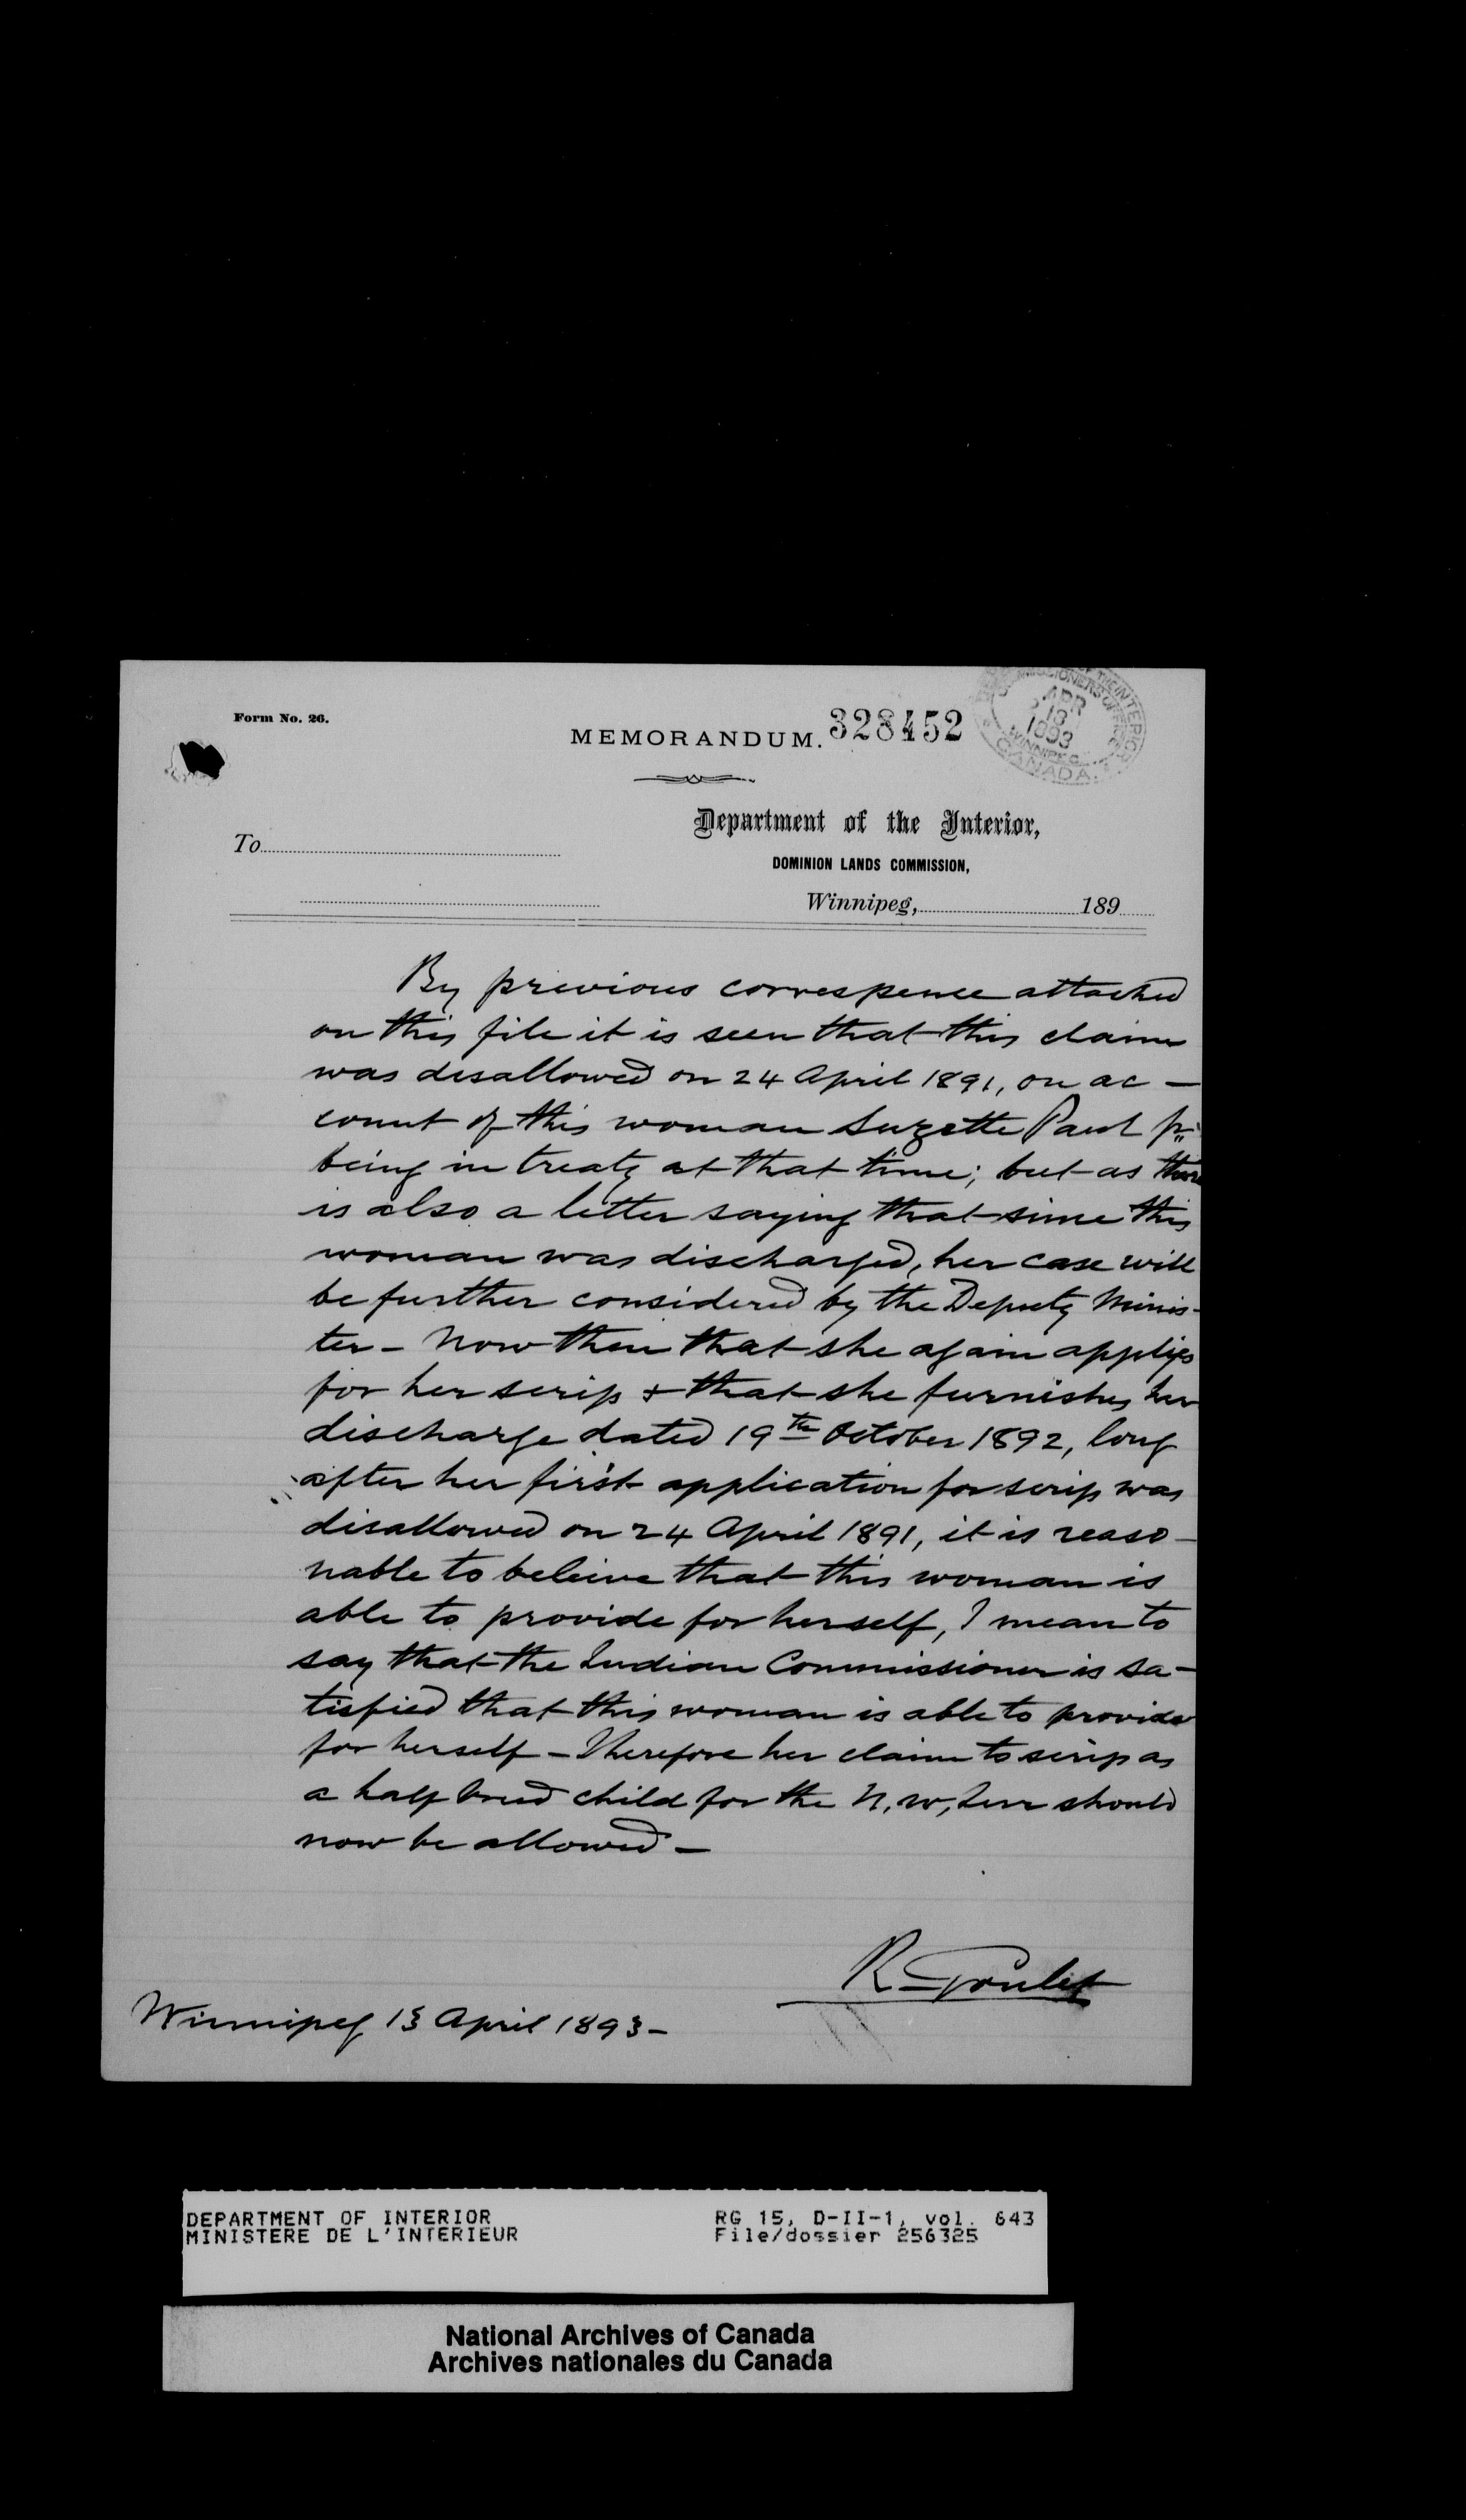 Form No. 26.
MEMORANDUM.
328452
OF THE INTERIOR
COMMISSIONERS OFFICE
APR
13
1893
WINNIPEG
CANADA.
Department of the Interior,
To
DOMINION LANDS COMMISSION,
Winnipeg, 189
By previous correspence attached
on this file it is seen that this claim
was disallowed on 24 April 1891, on ac-
count of this woman Suzette Paul
being in treaty at that time; but as there
is also a letter saying that since this
woman was discharged, her case will
be further considered by the Deputy Minis-
ter - Now then that she again applies
for her scrip & that she furnishes her
discharge dated 19th October 1892, long
after her first application for scrip was
disallowed on 24 April 1891, it is reaso-
nable to beleive that this woman is
able to provide for herself, I mean to
say that the Indian Commissioner is sa-
tisfied that this woman is able to provide
for herself - Therefore her claim to scrip as
a half breed child for the N.W. Terr should
now be allowed -
R Goulet
Winnipeg 13 April 1893 -
DEPARTMENT OF INTERIOR RG 15, D-II-1, vol. 643
MINISTERE DE L'INTERIEUR File/dossier 256325
National Archives of Canada
Archives nationales du Canada